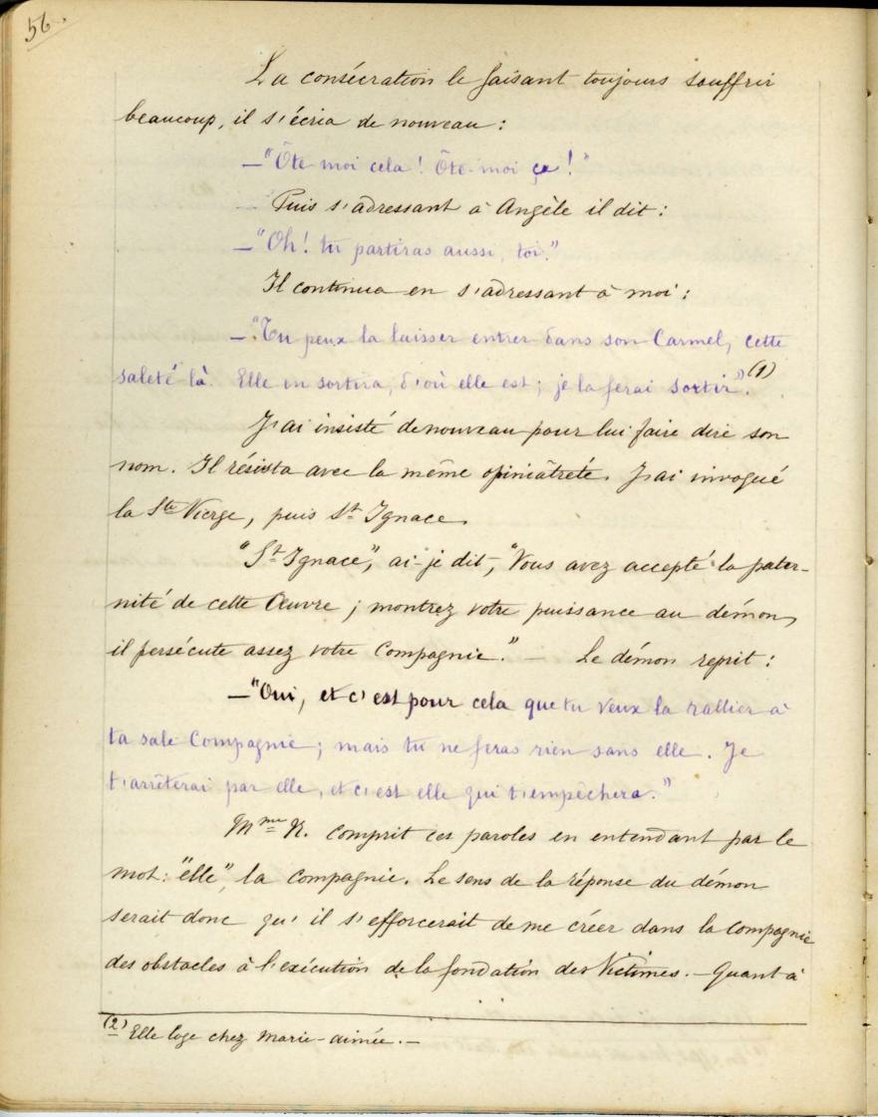 56.
La consécration le faisant toujours souffrir
beaucoup, il s'écria de nouveau :
—"Ôte moi cela ! Ôte-moi ça !"
— Puis s'adressant à Angèle il dit :
—"Oh ! tu partiras aussi, toi."
Il continua en s'adressant à moi :
—"Tu peux la laisser entrer dans son Carmel, cette
saleté là. Elle en sortira, d'où elle est ; je la ferai sortir". (1)
J'ai insisté de nouveau pour lui faire dire son
nom. Il résista avec la même opiniâtreté. J'ai invoqué
la Ste Vierge, puis St Ignace.
"St Ignace", ai-je dit, "Vous avez accepté la pater-
nité de cette Œuvre ; montrez votre puissance au démon,
il persécute assez votre Compagnie." — Le démon reprit :
—"Oui, et c'est pour cela que tu veux la rallier à
ta sale Compagnie ; mais tu ne feras rien sans elle. Je
t'arrêterai par elle, et c'est elle qui t'empêchera."
Mme R. comprit ces paroles en entendant par le
mot : "elle", la Compagnie. Le sens de la réponse du démon
serait donc qu'il s'efforcerait de me créer dans la Compagnie
des obstacles à l'exécution de la fondation des Victimes. — Quant à
(2) Elle loge chez Marie-aimée. —